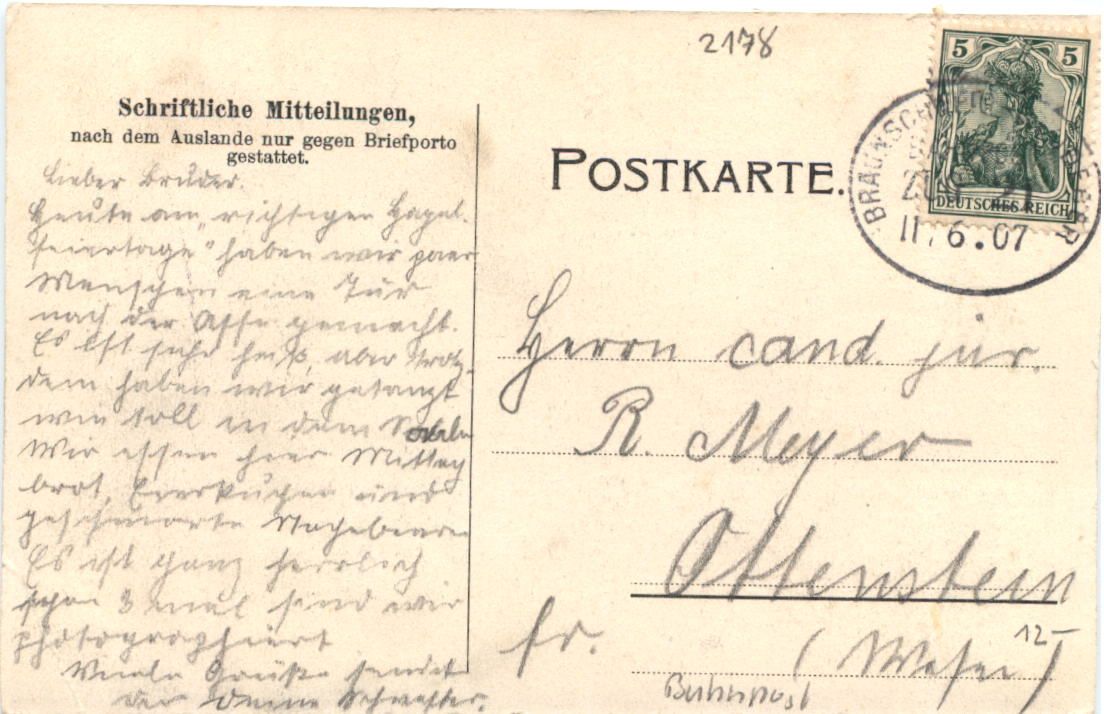 2178
Schriftliche Mitteilungen,
nach dem Auslande nur gegen Briefporto
gestattet.
POSTKARTE.
5 5
DEUTSCHES REICH
BRAUNSCHWEIG
ZUG 21
11.6.07
Lieber Bruder.
Heute am „richtigen Hagel-
feiertage" haben wir paar
Menschen eine Tur
nach der Asse gemacht.
Es ist sehr heiß, aber trotz-
dem haben wir getanzt
wie toll in dem Saale
Wir essen hier Mittag
brot, Eierkuchen und
geschmorte Stachelbeeren
Es ist ganz herrlich
schon 3 mal sind wir
photographiert
Viele Grüße sendet
dir Deine Schwester.
Herrn cand. jur.
R. Meyer
Ottenstein
fr. (Weser)
12-
Bahnpost